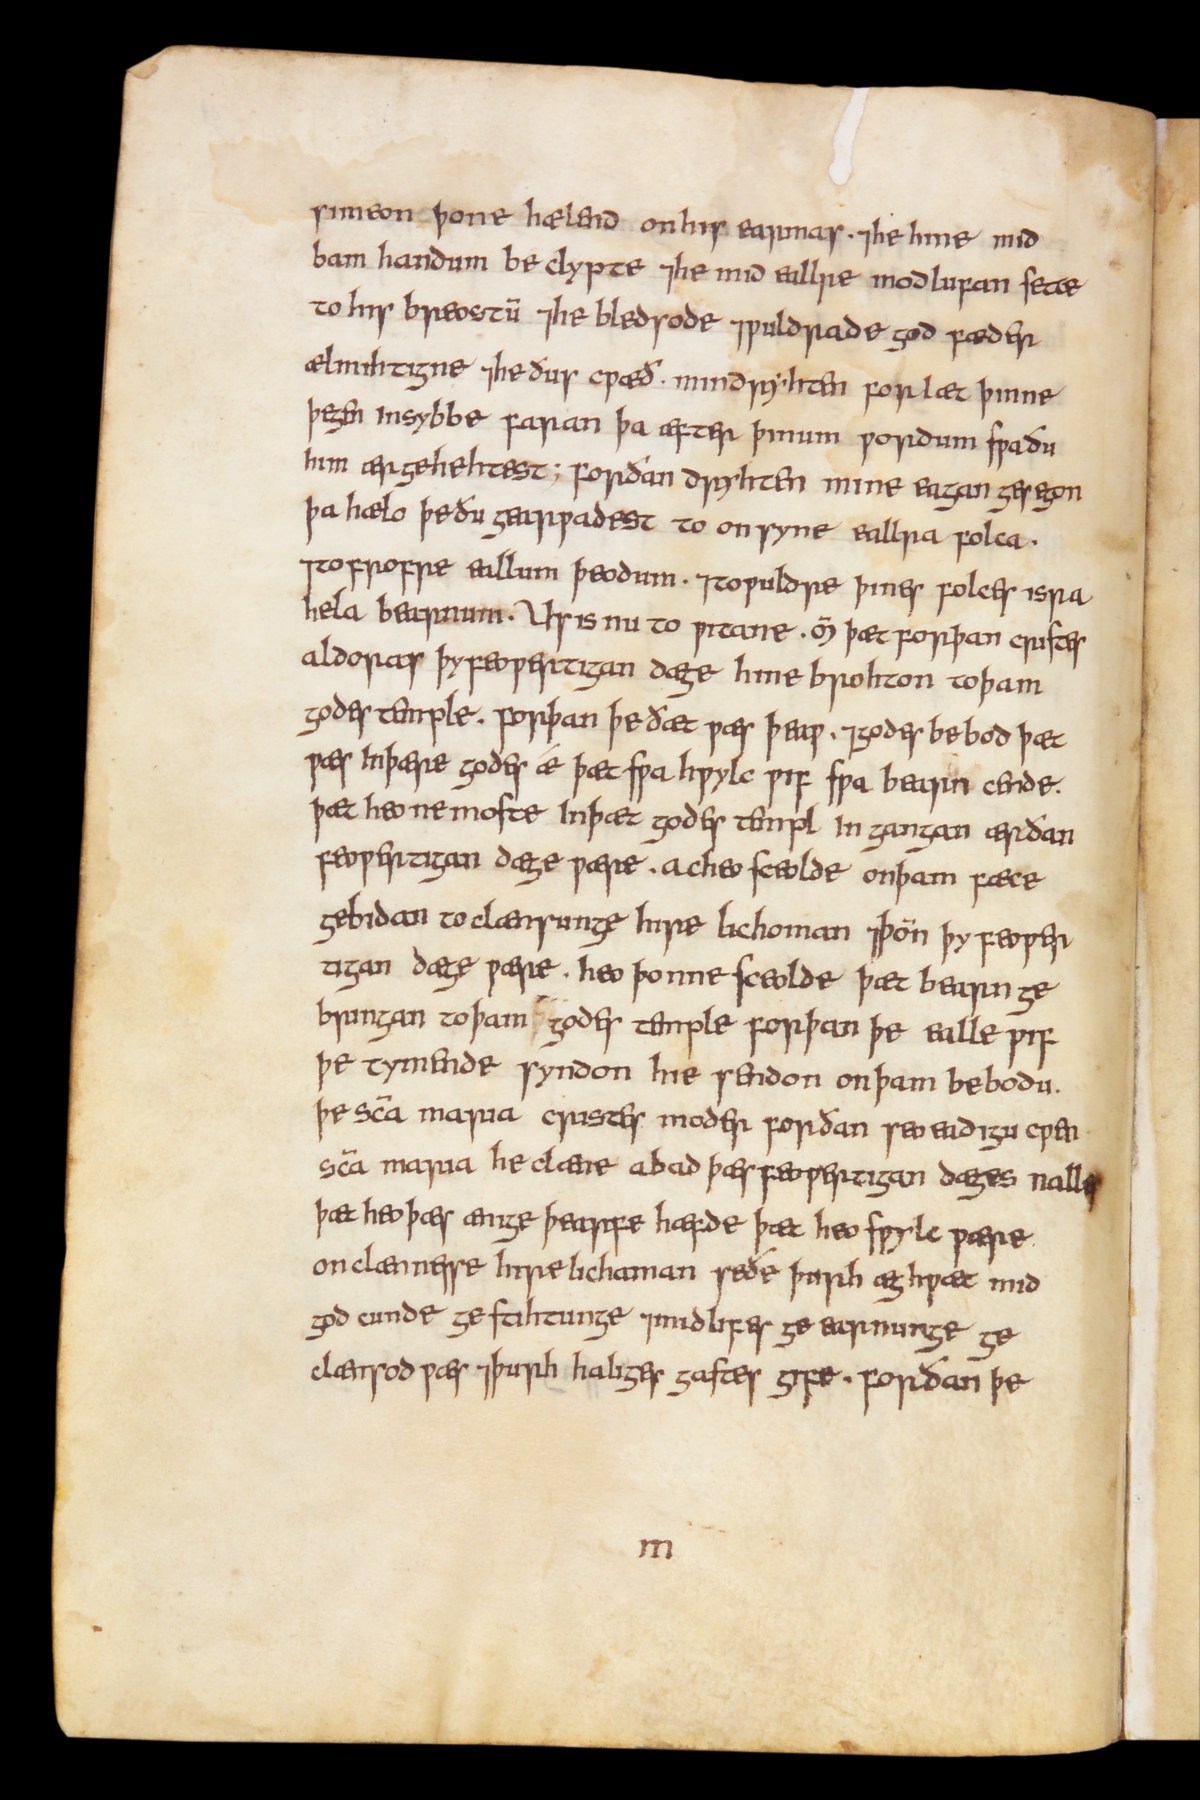 simeon þone hælend onhis earmas · ⁊he hine mid
bam handum be clypte ⁊he mid eallre modlufan sette
to his breostū ⁊he bledsode ⁊ƿuldrade god fæder
ælmihtigne ⁊he ðus cƿæð · min dryhten for læt þinne
þegen insybbe faran þa æfter þinum ƿordum sƿaðu
him ærgehehtest ; forðan dryhten mine eagan gesegon
þa hælo þeðu gearƿadest to on syne eallra folca ·
⁊tofrofre eallum þeodum · ⁊toƿuldre þines folces isra
hela bearnum · Us is nu to ƿitane · m̄ þæt forþan cristes
aldoras þyfeoƿertigan dæge hine brohton toþam
godes temple · forþan þe ðæt ƿæs þeaƿ · ⁊godes be bod þæt
ƿæs Inþære godes ǽ þæt sƿa hƿylc ƿif sƿa bearn cende ·
þæt heo ne moste Inþæt godes templ In gangan ærðan
feoƿertigan dæge ƿære · acheo sceolde onþam fæce
gebidan to clænsunge hire lichoman ⁊þōn þy feoƿer
tigan dæge ƿære · heo þonne sceolde þæt bearn ge
brungan toþam godes temple forþan þe ealle ƿif
þe tymende syndon hie sendon onþam bebodu ·
þe sc̄a maria cristes moder forðan seo eadigu cƿen
sc̄a maria he clæne abad þæs feoƿertigan dæges nalles
þæt heo þæs ænge þearfe hæfde þæt heo sƿylc ƿære
onclænnesse hire lichaman seðe þurh æghƿæt mid
god cunde ge stihtunge ⁊midlifes ge earnunge ge
clænsod ƿæs ⁊þurh haliges gastes gife · forðan þe
m